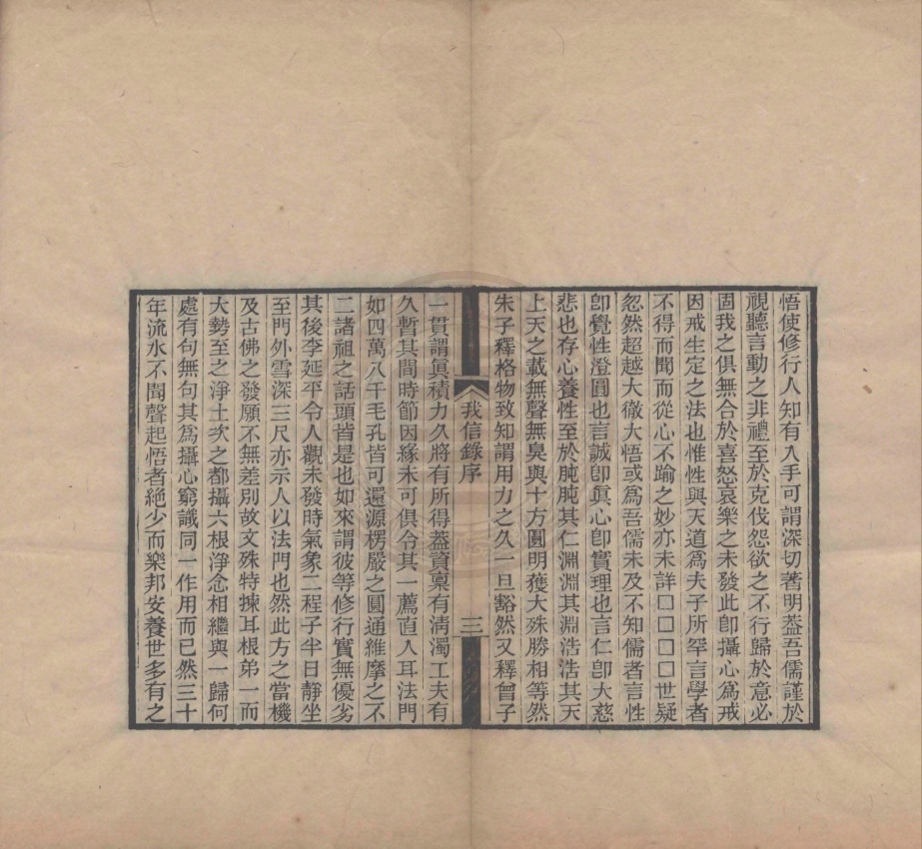 悟使修行人知有入手可謂深切著明葢吾儒謹於
視聽言動之非禮至於克伐怨欲之不行歸於意必
固我之俱無合於喜怒哀樂之未發此卽攝心爲戒
因戒生定之法也惟性與天道爲夫子所罕言學者
不得而聞而從心不踰之妙亦未詳□□□□世疑
忽然超越大徹大悟或爲吾儒未及不知儒者言性
卽覺性澄圓也言誠卽眞心卽實理也言仁卽大慈
悲也存心養性至於肫肫其仁淵淵其淵浩浩其天
上天之載無聲無臭與十方圓明獲大殊勝相等然
朱子釋格物致知謂用力之久一旦豁然又釋曾子
我信錄序
三
一貫謂眞積力久將有所得葢資稟有淸濁工夫有
久暫其間時節因緣未可俱令其一薦直入耳法門
如四萬八千毛孔皆可還源楞嚴之圓通維摩之不
二諸祖之話頭皆是也如來謂彼等修行實無優劣
其後李延平令人觀未發時氣象二程子半日靜坐
至門外雪深三尺亦示人以法門也然此方之當機
及古佛之發願不無差別故文殊特揀耳根弟一而
大勢至之淨土次之都攝六根淨念相繼與一歸何
處有句無句其爲攝心窮識同一作用而已然三十
年流水不聞聲起悟者絶少而樂邦安養世多有之